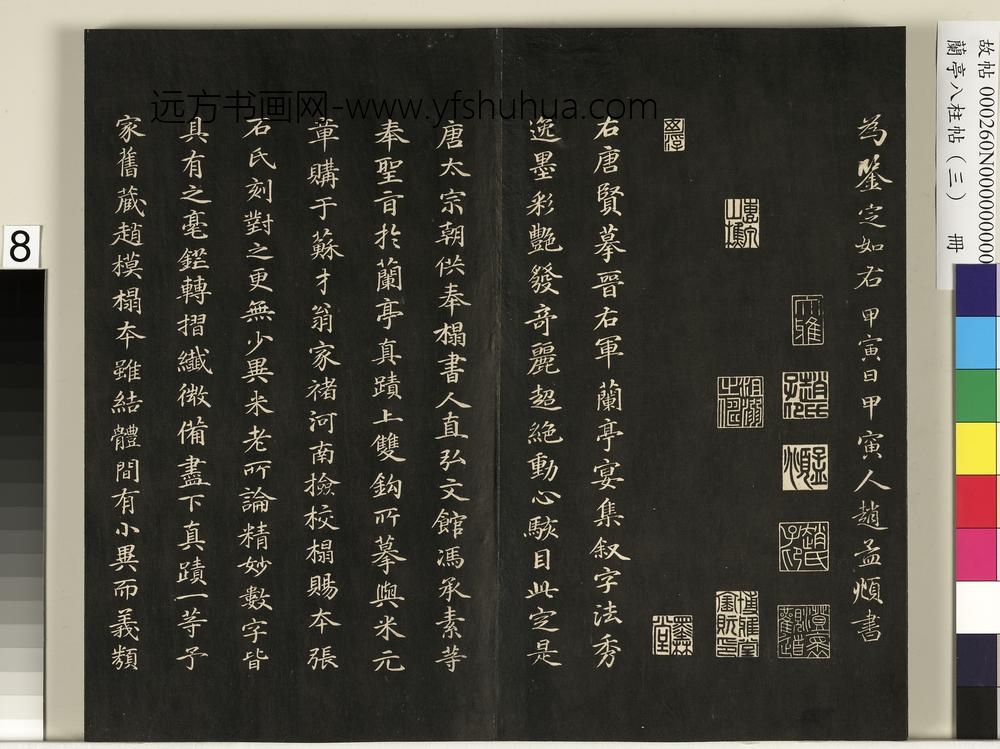 為鑒定如右甲寅日甲寅人趙孟頫書
大雅
趙氏子昂
趙氏子印
博雅堂
墨林
右唐賢摹晉右軍蘭亭宴集叙字法秀
逸墨彩艷發奇麗超絶動心駭目此定是
唐太宗朝供奉榻書人直弘文館馮承素等
奉聖旨於蘭亭真蹟上雙鈎所摹與米元
章購于蘇才翁家褚河南撿校榻賜本張
石氏刻對之更無少異米老所論精妙數字皆
具有之毫鋩轉摺纖微備盡下真蹟一等予
家舊藏趙模榻本雖結體間有小異而義類
故帖 000260N000000000
蘭亭八柱帖（三） 冊
远方书画网-www.yfshuhua.com
8